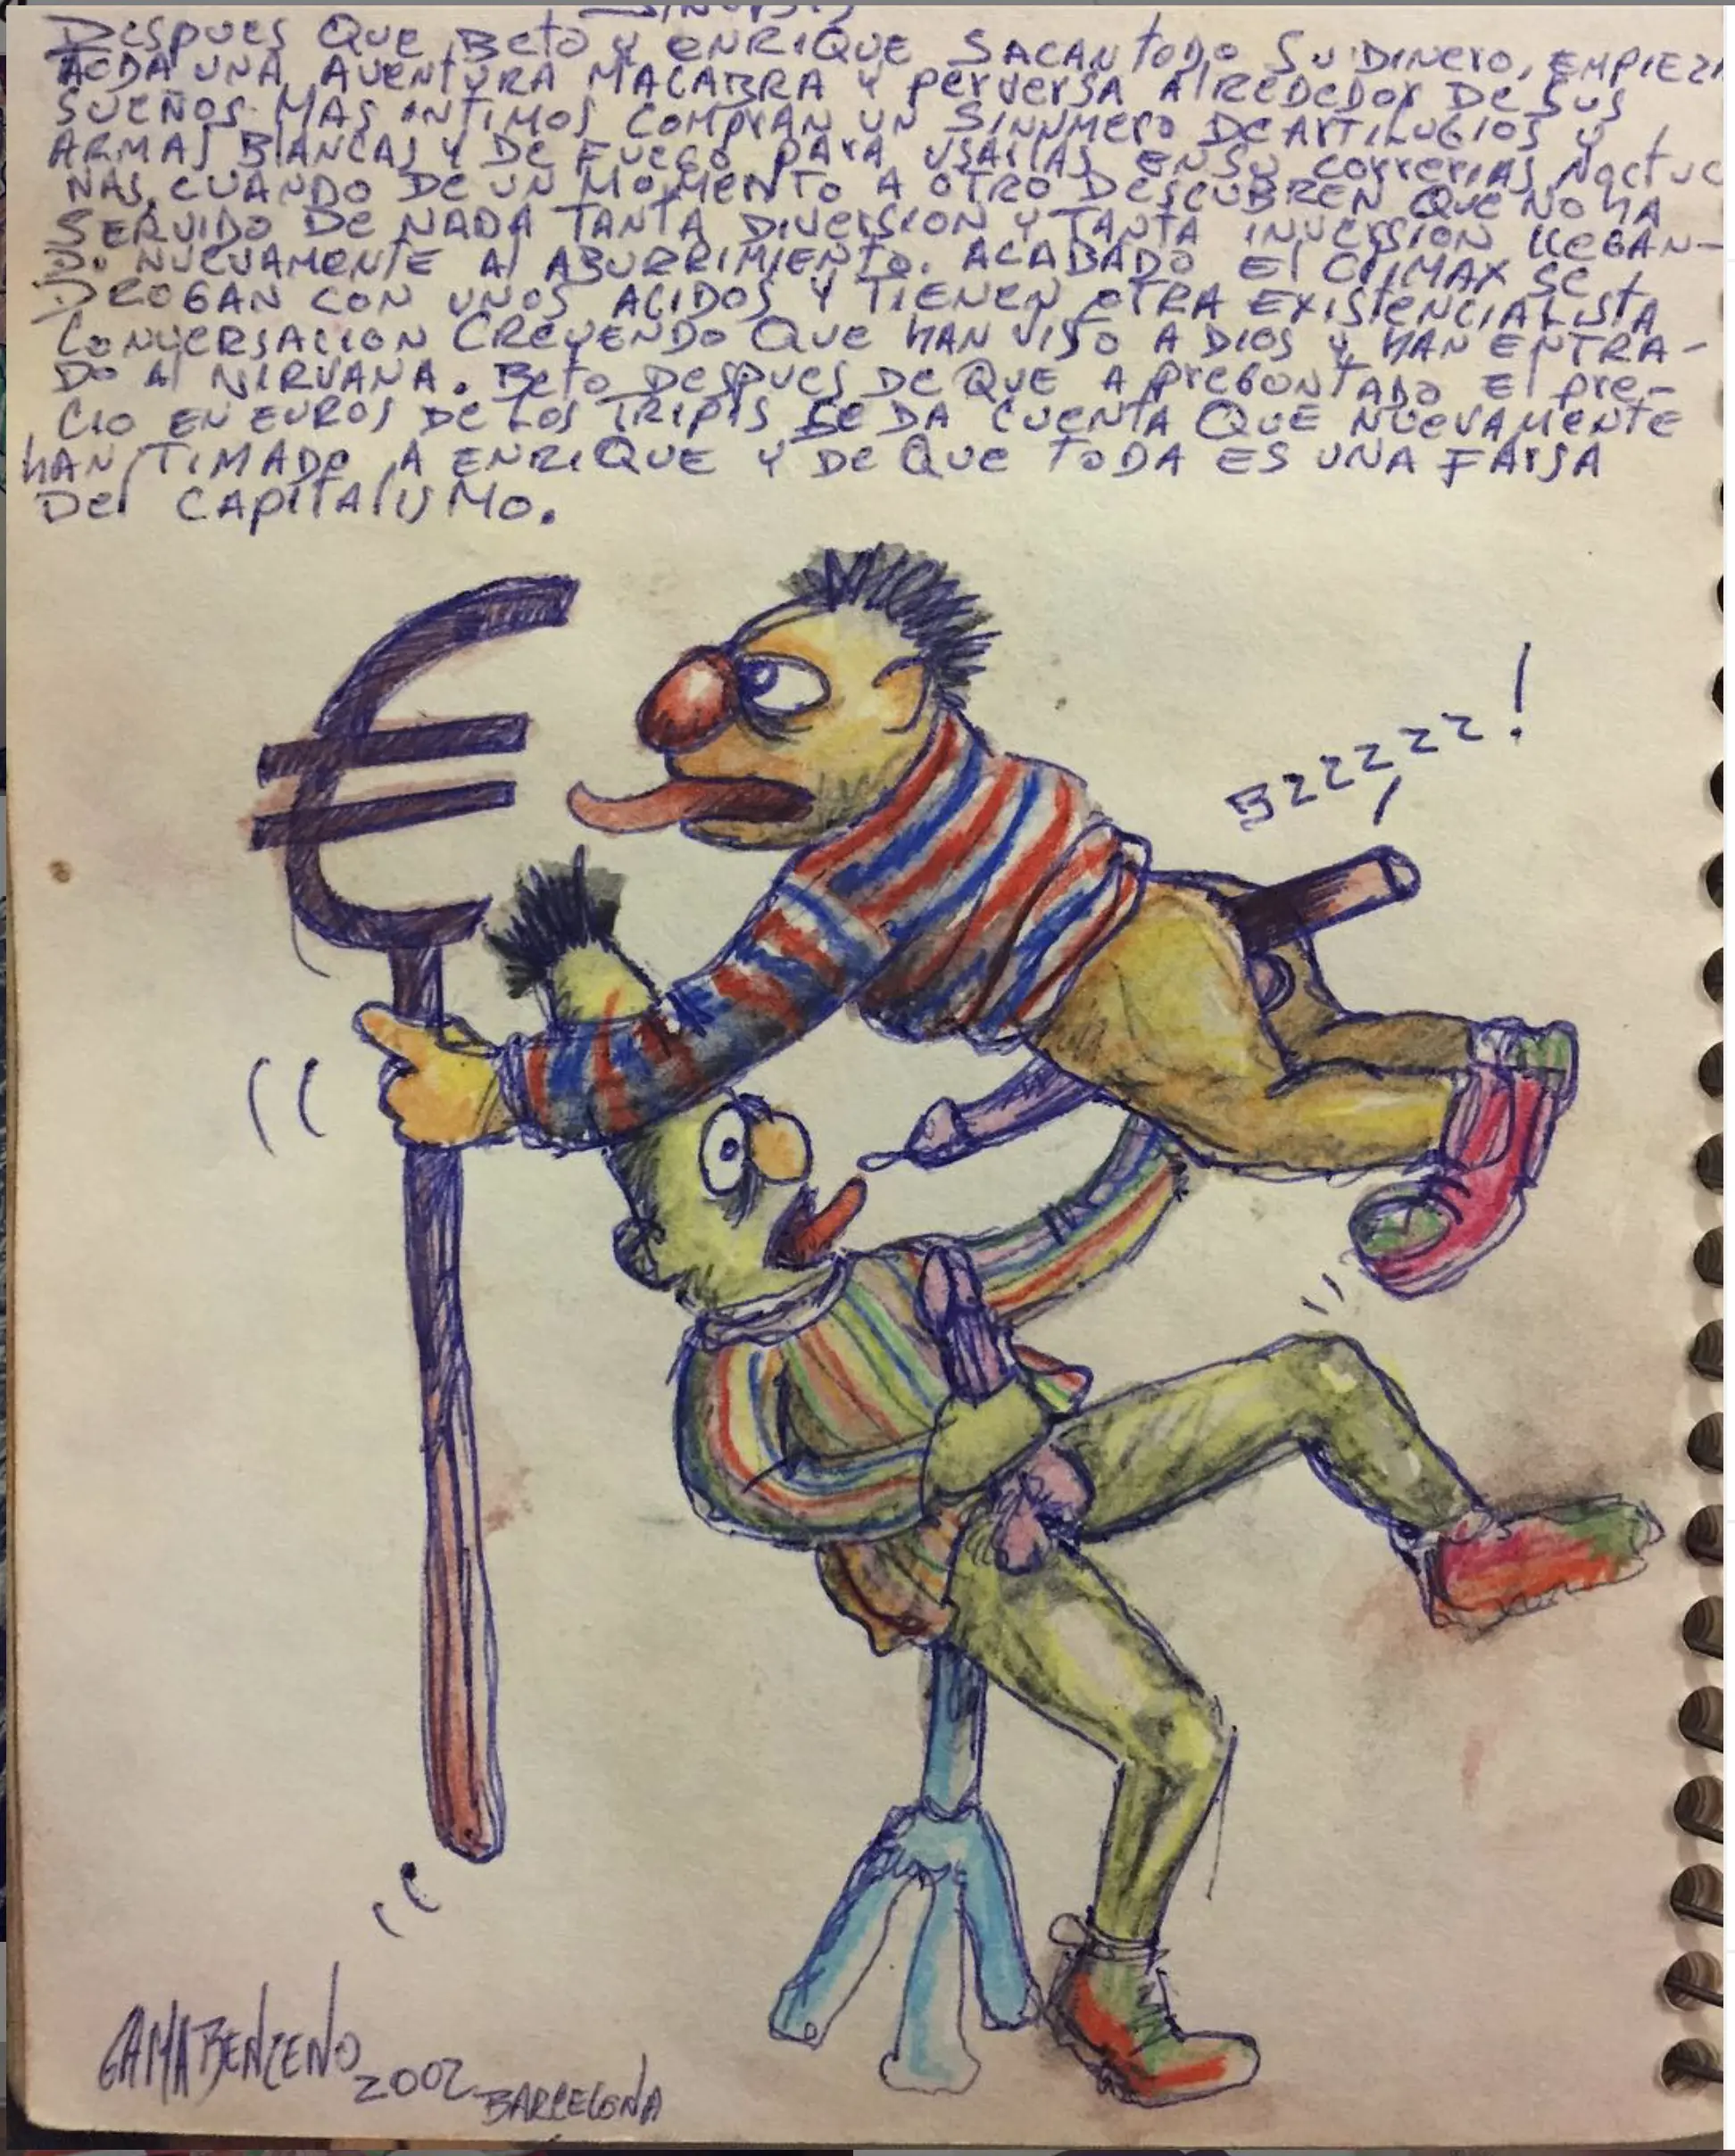 SINOPSIS
DESPUES QUE BETO Y ENRIQUE SACAN TODO SU DINERO, EMPIEZA
TODA UNA AVENTURA MACABRA Y PERVERSA ALREDEDOR DE SUS
SUEÑOS MAS INTIMOS COMPRAN UN SINNUMERO DE ARTILUGIOS Y
ARMAS BLANCAS Y DE FUEGO PARA USARLAS EN SU CORRERIAS NOCTUR
NAS, CUANDO DE UN MOMENTO A OTRO DESCUBREN QUE NO HA
SERVIDO DE NADA TANTA DIVERSION Y TANTA INVERSION LLEGAN-
DO NUEVAMENTE AL ABURRIMIENTO. ACABADO EL CLIMAX SE
DROGAN CON UNOS ACIDOS Y TIENEN OTRA EXISTENCIALISTA
CONVERSACION CREYENDO QUE HAN VISTO A DIOS Y HAN ENTRA-
DO AL NIRVANA. BETO DESPUES DE QUE A PREGONTADO EL PRE-
CIO EN EUROS DE LOS TRIPIS SE DA CUENTA QUE NUEVAMENTE
HAN TIMADO A ENRIQUE Y DE QUE TODA ES UNA FARSA
DEL CAPITALISMO.
€
BZZZZZZ!
GAMABENZENO
2002 BARCELONA